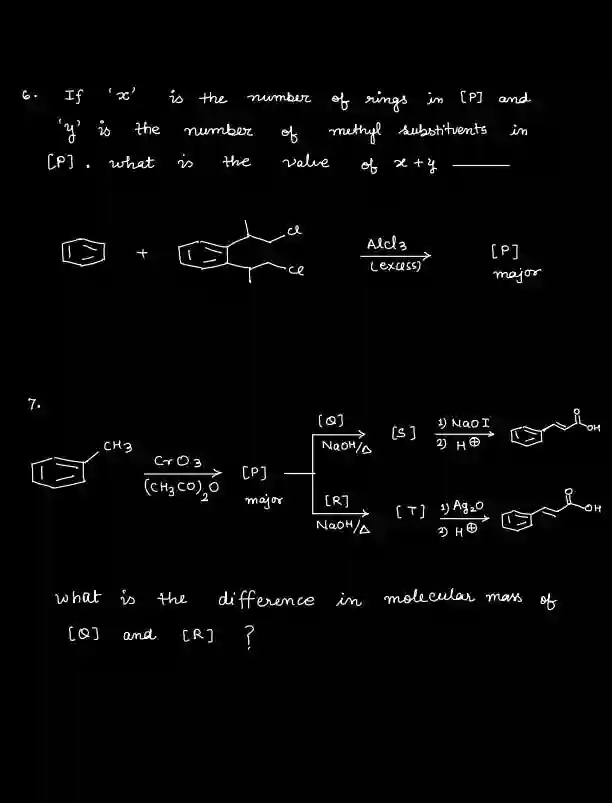 6. If 'x' is the number of rings in [P] and
'y' is the number of methyl substituents in
[P]. what is the value of x + y ____
+ cl cl AlCl3 (excess) [P] major
7.
CH3 CrO3 (CH3CO)2O [P] major
[Q] NaOH/Δ [S] 1) NaOI 2) H⊕ O OH
[R] NaOH/Δ [T] 1) Ag2O 2) H⊕ O OH
what is the difference in molecular mass of
[Q] and [R] ?